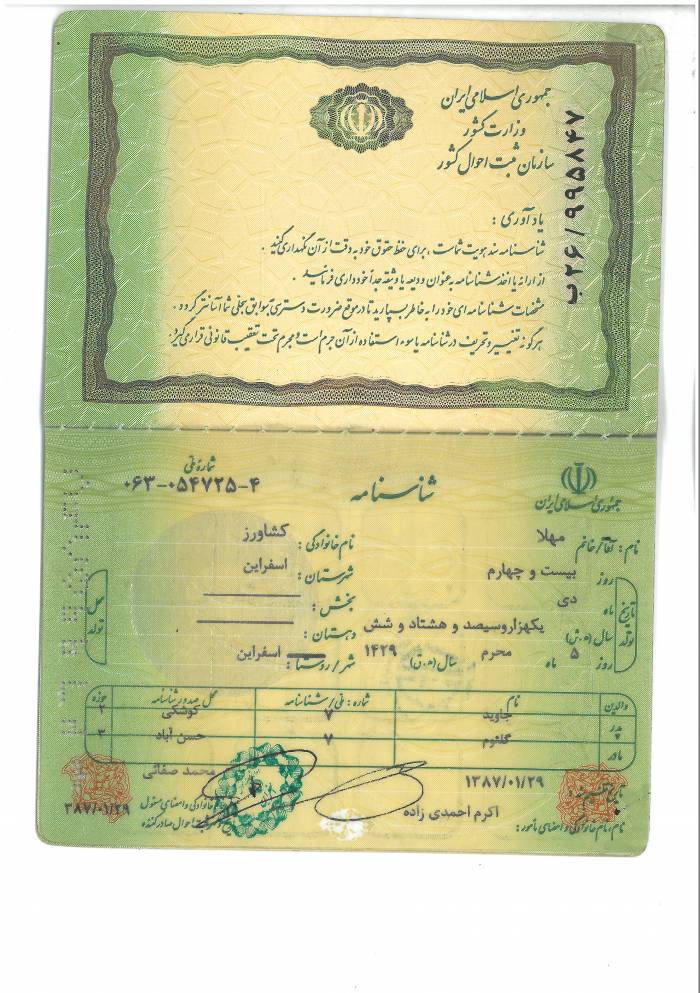 جمهوری اسلامی ایران
وزارت کشور
سازمان ثبت احوال کشور
ب۲۶/۹۹۵۸۴۷
یادآوری :
شناسنامه سند هویت شماست ، برای حفظ حقوق خود به دقت از آن نگهداری کنید .
از ارائه یا اخذ شناسنامه به عنوان ودیعه یا وثیقه جداً خودداری فرمائید .
مشخصات شناسنامه ای خود را به خاطر بسپارید تا در موقع ضرورت دسترسی به سوابق سجلی شما آسانتر گردد .
هرگونه تغییر و تحریف در شناسنامه یا سوء استفاده از آن جرم است و مجرم تحت تعقیب قانونی قرار می گیرد.
جمهوری اسلامی ایران
شناسنامه
شماره ملی
۰۶۳-۰۵۴۷۲۵-۴
نام : آقا/خانم مهلا
نام خانوادگی : کشاورز
تاریخ تولد
روز بیست و چهارم
ماه دی
سال (ه.ش) یکهزاروسیصد و هشتاد و شش
روز ۵ ماه محرم سال (ه.ق) ۱۴۲۹
محل تولد
شهرستان : اسفراین
بخش :
دهستان :
شهر/روستا : اسفراین
والدین نام شماره : ملی/شناسنامه محل صدور شناسنامه حوزه
پدر جاوید ۷ کوشکی ۲
مادر گلثوم ۷ حسن آباد ۳
۱۳۸۷/۰۱/۲۹
نام،نام خانوادگی و امضای مأمور : اکرم احمدی زاده
محمد صفائی
نام خانوادگی و امضای مسئول
احوال صادرکننده
۳۸۷/۰۱/۲۹